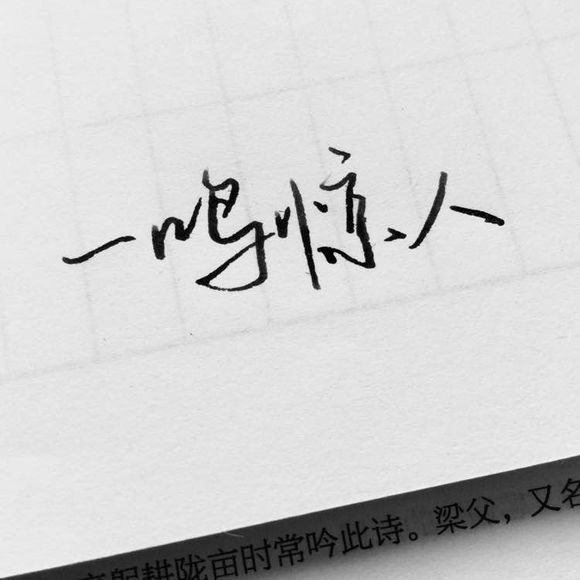 一鸣惊人
躬耕陇亩时常吟此诗。梁父，又名